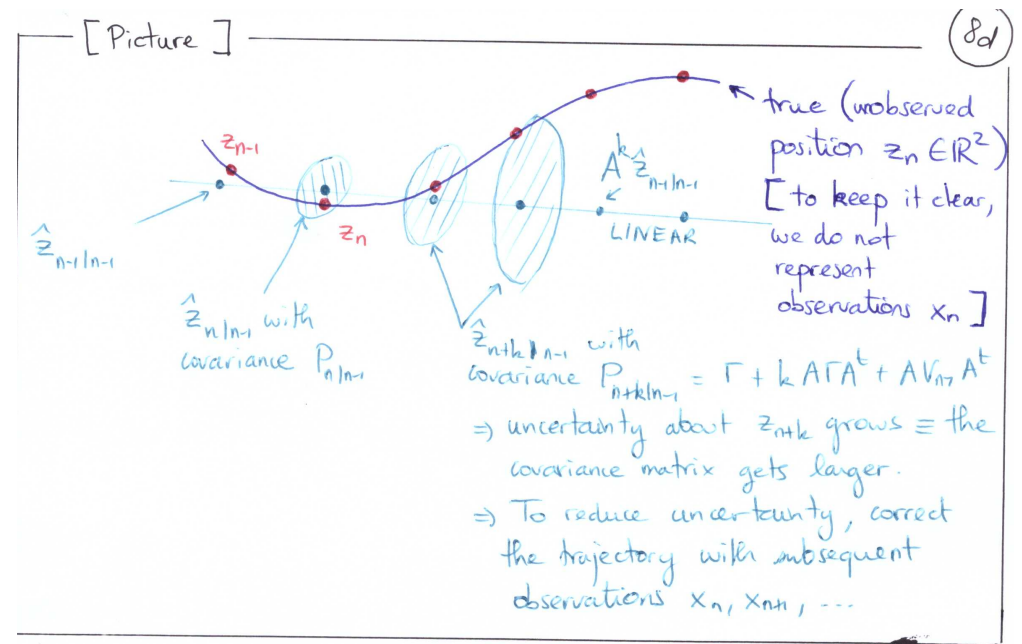 [ Picture ]
8d
true (unobserved
position z_n ∈ ℝ²)
[ to keep it clear,
we do not
represent
observations x_n ]
z_{n-1}
z_n
A^k ẑ_{n-1|n-1}
LINEAR
ẑ_{n-1|n-1}
ẑ_{n|n-1} with
covariance P_{n|n-1}
ẑ_{n+k|n-1} with
covariance P_{n+k|n-1} = Γ + k AΓA^t + A V_{n-1} A^t
⇒ uncertainty about z_{n+k} grows ≡ the
covariance matrix gets larger.
⇒ To reduce uncertainty, correct
the trajectory with subsequent
observations x_n, x_{n+1}, ...